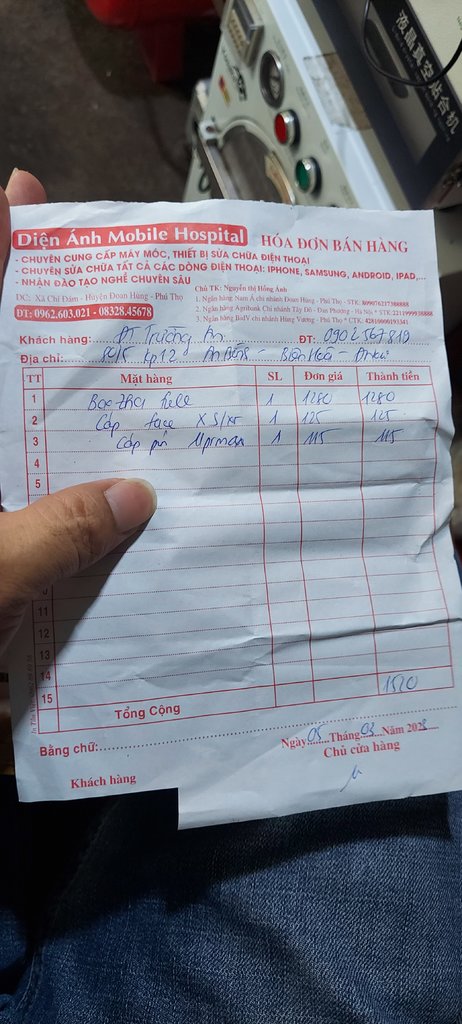 液晶真空贴合机
Diện Ánh Mobile Hospital
HÓA ĐƠN BÁN HÀNG
- CHUYÊN CUNG CẤP MÁY MÓC, THIẾT BỊ SỬA CHỮA ĐIỆN THOẠI
- CHUYÊN SỬA CHỮA TẤT CẢ CÁC DÒNG ĐIỆN THOẠI: IPHONE, SAMSUNG, ANDROID, IPAD,...
- NHẬN ĐÀO TẠO NGHỀ CHUYÊN SÂU
Chủ TK: Nguyễn thị Hồng Ánh
ĐC: Xã Chí Đám - Huyện Đoan Hùng - Phú Thọ
1. Ngân hàng Nam Á chi nhánh Đoan Hùng - Phú Thọ - STK:
2. Ngân hàng Agribank Chi nhánh Tây Đô - Đan Phượng - Hà Nội * STK
3. Ngân hàng BidV chi nhánh Hùng Vương - Phú Thọ * CTK:
ĐT: 0962.603.021 - 08328.45678
Khách hàng: ĐT Trường An ĐT: 0902567819
Địa chỉ: kp12 An Bình - Biên Hoà - Đ Nai
TT Mặt hàng SL Đơn giá Thành tiền
1 1 1280 1280
2 Cáp face XS/xr 1 125 125
3 Cáp pin 11prmax 1 115 115
4
5
11
12
13
14
15 1520
Tổng Cộng
Bằng chữ:
Ngày 05 Tháng 03 Năm 2023
Khách hàng
Chủ cửa hàng